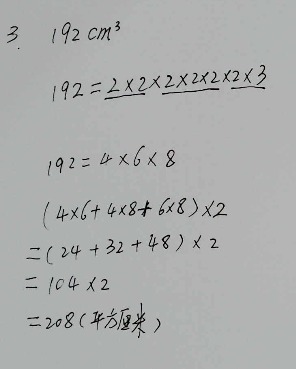 3. 192 cm³
192=2×2×2×2×2×2×3
192=4×6×8
(4×6+4×8+6×8)×2
=(24+32+48)×2
=104×2
=208(平方厘米)